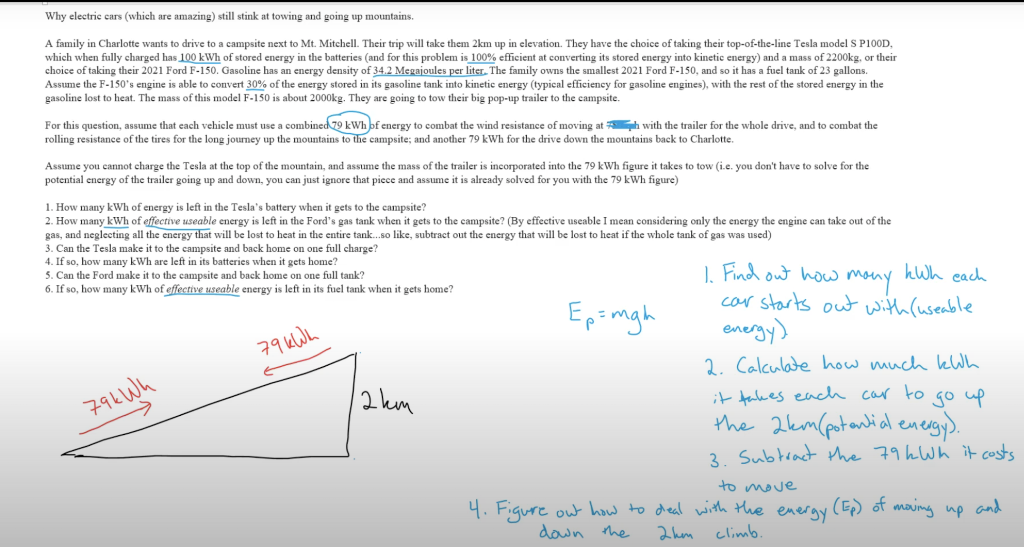 Why electric cars (which are amazing) still stink at towing and going up mountains.
A family in Charlotte wants to drive to a campsite next to Mt. Mitchell. Their trip will take them 2km up in elevation. They have the choice of taking their top-of-the-line Tesla model S P100D,
which when fully charged has 100 kWh of stored energy in the batteries (and for this problem is 100% efficient at converting its stored energy into kinetic energy) and a mass of 2200kg, or their
choice of taking their 2021 Ford F-150. Gasoline has an energy density of 34.2 Megajoules per liter. The family owns the smallest 2021 Ford F-150, and so it has a fuel tank of 23 gallons.
Assume the F-150's engine is able to convert 30% of the energy stored in its gasoline tank into kinetic energy (typical efficiency for gasoline engines), with the rest of the stored energy in the
gasoline lost to heat. The mass of this model F-150 is about 2000kg. They are going to tow their big pop-up trailer to the campsite.
For this question, assume that each vehicle must use a combined 79 kWh of energy to combat the wind resistance of moving at with the trailer for the whole drive, and to combat the
rolling resistance of the tires for the long journey up the mountains to the campsite; and another 79 kWh for the drive down the mountains back to Charlotte.
Assume you cannot charge the Tesla at the top of the mountain, and assume the mass of the trailer is incorporated into the 79 kWh figure it takes to tow (i.e. you don't have to solve for the
potential energy of the trailer going up and down, you can just ignore that piece and assume it is already solved for you with the 79 kWh figure)
1. How many kWh of energy is left in the Tesla's battery when it gets to the campsite?
2. How many kWh of effective useable energy is left in the Ford's gas tank when it gets to the campsite? (By effective useable I mean considering only the energy the engine can take out of the
gas, and neglecting all the energy that will be lost to heat in the entire tank...so like, subtract out the energy that will be lost to heat if the whole tank of gas was used)
3. Can the Tesla make it to the campsite and back home on one full charge?
4. If so, how many kWh are left in its batteries when it gets home?
5. Can the Ford make it to the campsite and back home on one full tank?
6. If so, how many kWh of effective useable energy is left in its fuel tank when it gets home?
Ep=mgh
79kWh
79kWh
2km
1. Find out how many kWh each
car starts out with (useable
energy)
2. Calculate how much kWh
it takes each car to go up
the 2km(potential energy).
3. Subtract the 79 kWh it costs
to move
4. Figure out how to deal with the energy (Ep) of moving up and
down the 2km climb.